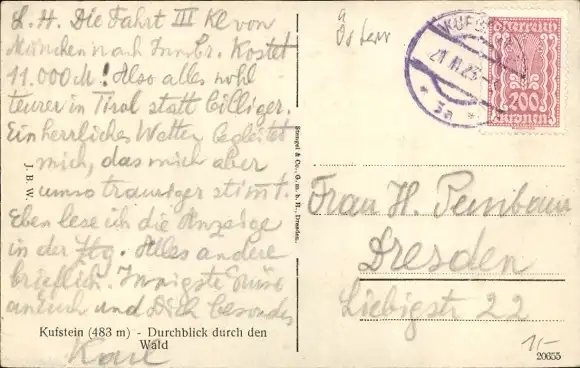 L. H. Die Fahrt III Kl von
München nach Innbr. Kostet
11.000 M! Also alles wohl
teurer in Tirol statt billiger.
Ein herrliches Wetter begleitet
mich, das mich aber
umso trauriger stimmt.
Eben lese ich die Anzeige
in der Ztg. Alles andere
brieflich. Innigste Grüsse
an euch und Dich besonders
Karl
Kufstein (483 m) - Durchblick durch den
Wald
J. B. W.
Stengel & Co., G. m. b. H., Dresden.
Österr
KUFSTEIN
3a
österreich
200
kronen
Frau H.
Dresden
Liebigstr 22
1-
20655